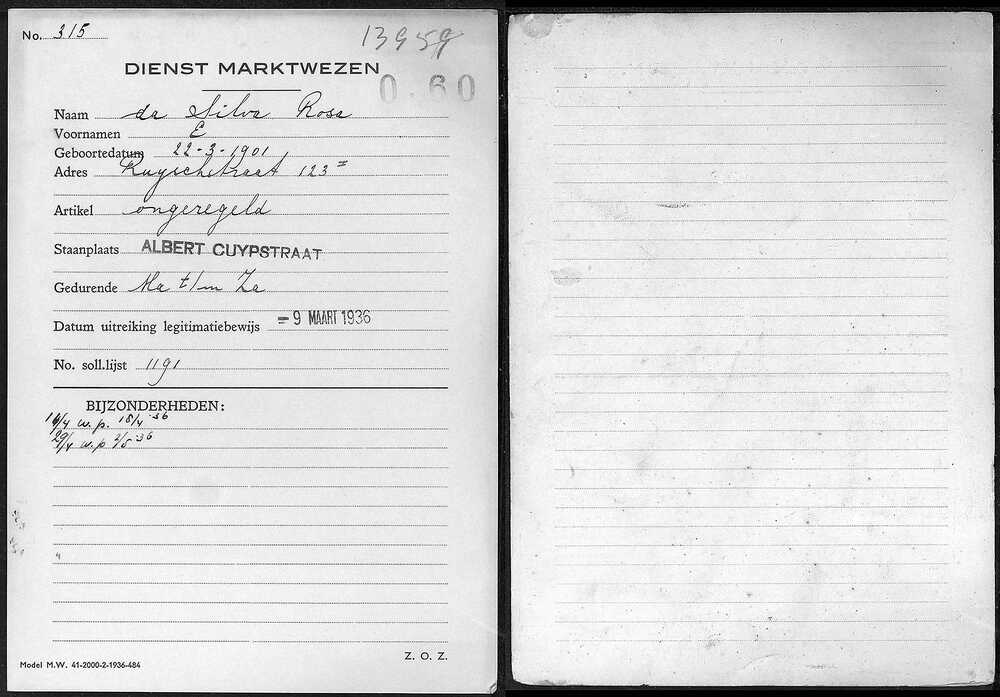 No. 315
13959
DIENST MARKTWEZEN
0.60
Naam da Silva Rosa
Voornamen E
Geboortedatum 22-3-1901
Adres Ruyschstraat 123 II
Artikel ongeregeld
Staanplaats ALBERT CUYPSTRAAT
Gedurende Ma t/m Za
Datum uitreiking legitimatiebewijs -9 MAART 1936
No. soll.lijst 1191
BIJZONDERHEDEN:
w.p. 18/4 '36
29/4 w.p 2/5 '36
Z. O. Z.
Model M.W. 41-2000-2-1936-484